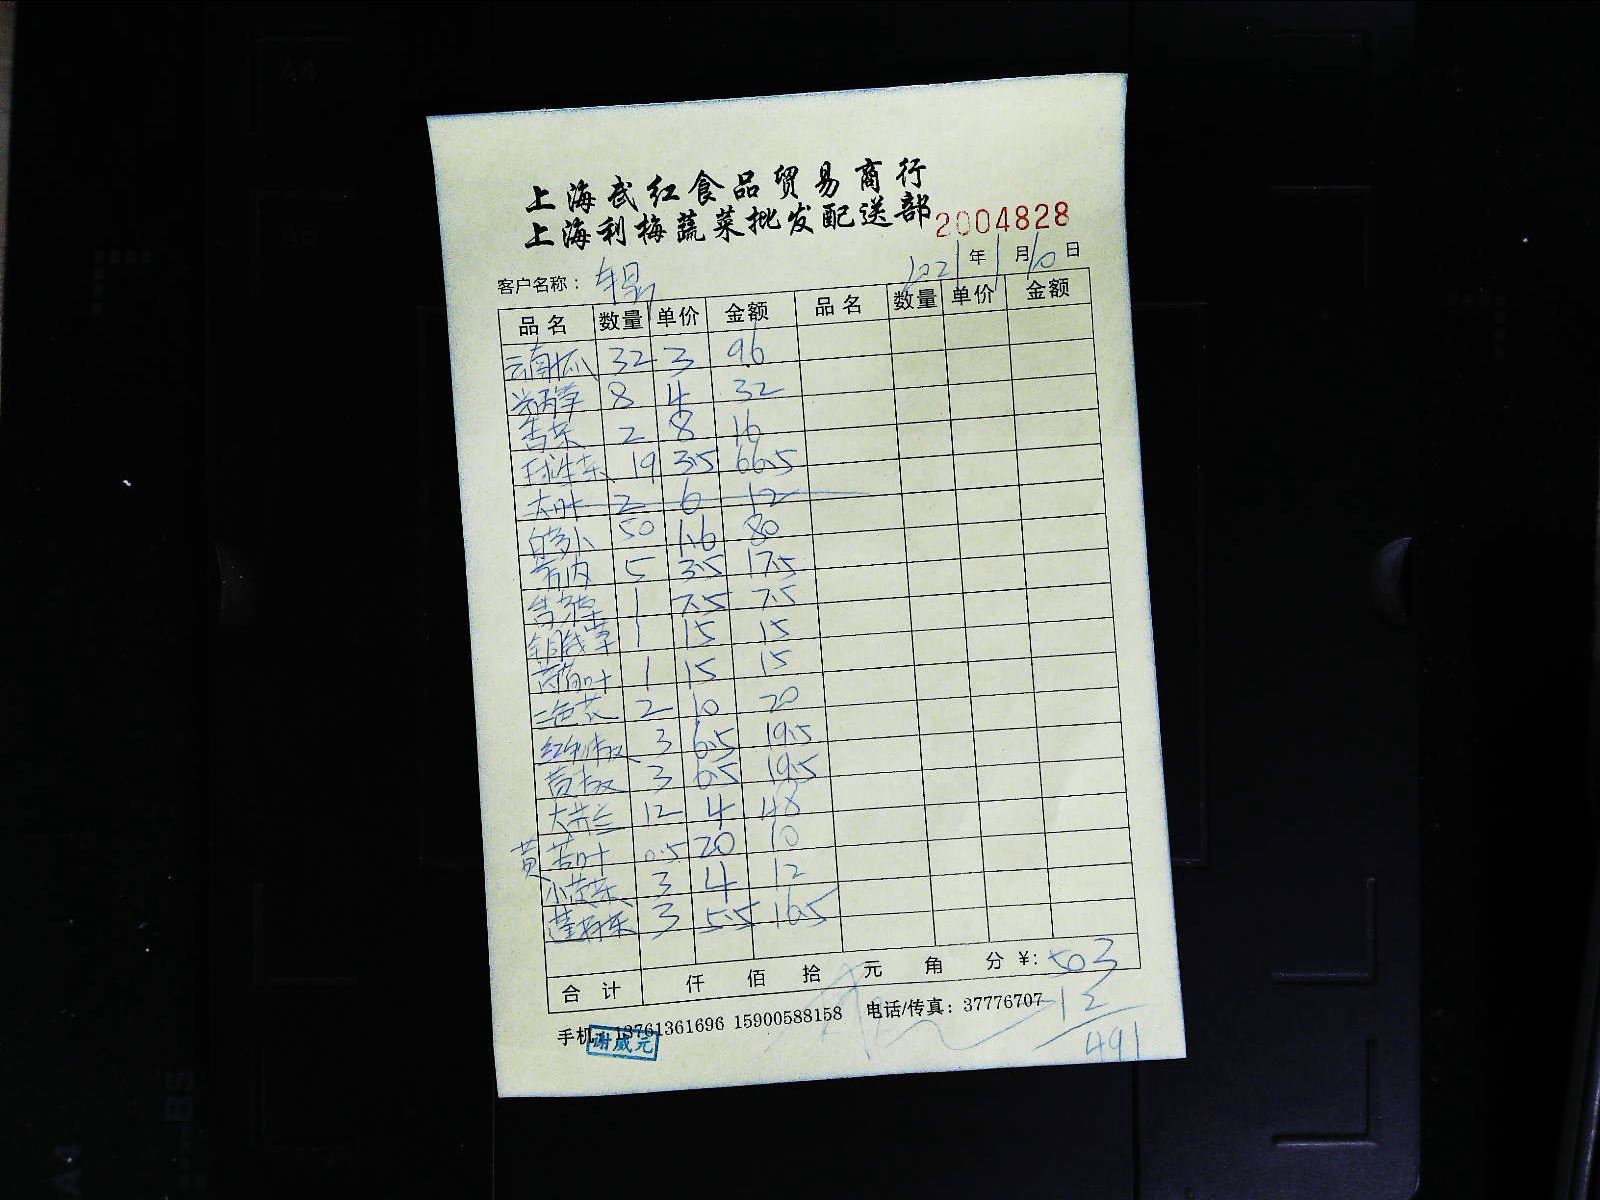 上海武红食品贸易商行
上海利梅蔬菜批发配送部 2004828
客户名称： 2021年1月10日
品名 数量 单价 金额 品名 数量 单价 金额
云南瓜 32 3 96
8 4 32
香菜 2 8 16
球生菜 19 3.5 66.5
大叶 2 6 12
白萝卜 50 1.6 80
5 3.5 17.5
1 7.5 7.5
铜钱草 1 15 15
荷叶 1 15 15
三色菜 2 10 20
红尖椒 3 6.5 19.5
黄椒 3 6.5 19.5
大芥兰 12 4 48
黄苦叶 0.5 20 10
小菠菜 3 4 12
蓬蒿菜 3 5.5 16.5
合计 仟 佰 拾 元 角 分 ¥: 503
手机 13761361696 15900588158 电话/传真：37776707 -12
谢威元
491